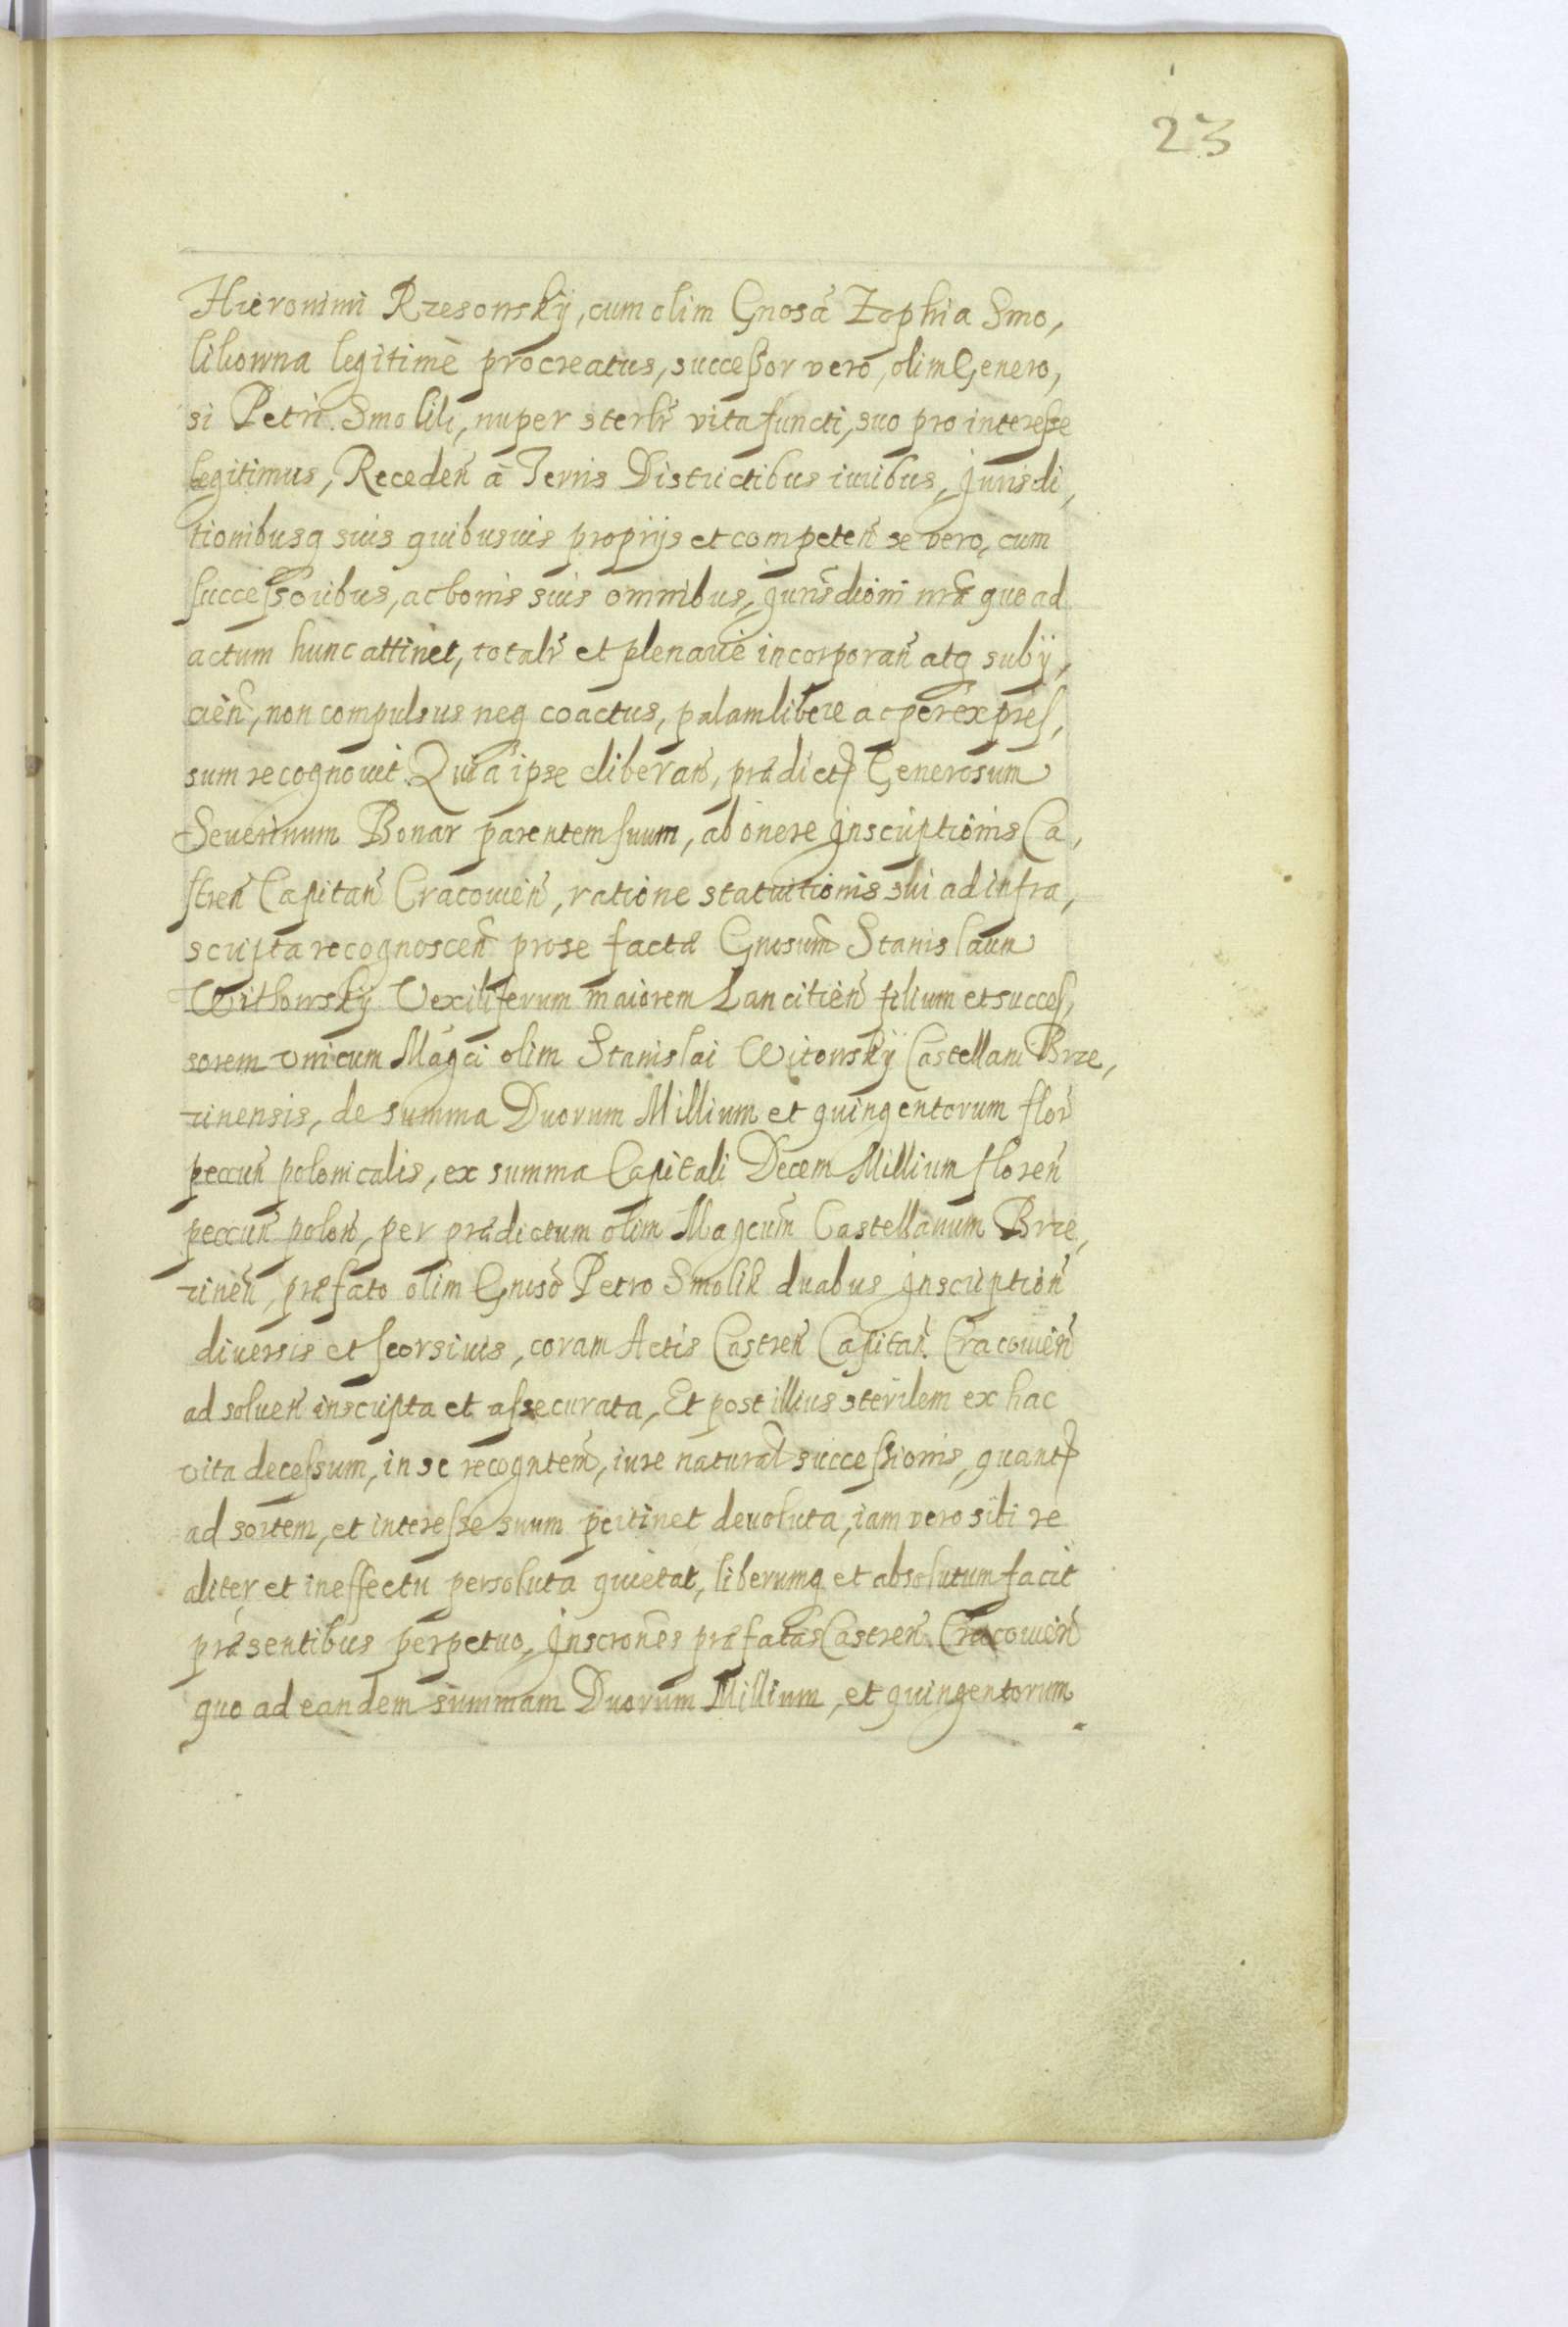 23
Hieronimi Rzesowskÿ, cum olim Gnosã Zophia Smo,
likowna legitimè procreatus, successor vero, olim Genero,
si Petri Smolik, nuper sterlr̃ vita functi, suo pro interesse
legitimus, Recedeñ à Terris Districtibus iuribus, Jurisdi,
tionibusq suis quibusuis proprijs et competeñ se vero, cum
successoribus, ac bonis suis omnibus, Jurisdioni nrã quo ad
actum hunc attinet, totalr̃ et plenarie incorporañ atq subÿ,
cieñ, non compulsus neq coactus, palam libere ac per expres,
sum recognouit. Quia ipse eliberañ, prædict Generosum
Seuerinum Bonar parentem suum, ab onere Jnscriptionis Ca,
streñ Capitañ Cracouieñ, ratione statuitionis sui ad infra,
scripta recognosceñ pro se factæ Gnosum̃ Stanislaum
Withowskÿ Vexiliferum maiorem Lancitieñ filium et succes,
sorem vnicum Magci olim Stanislai Witowskÿ Castellani Brze,
zinensis, de summa Duorum Millium et quingentorum flor̃
pecuñ polonicalis, ex summa Capitali Decem Millium floreñ
pecuñ poloñ, per prædictum olim Magcum̃ Castellanum Brze,
zineñ, præfato olim Gnosõ Petro Smolik duabus Jnscriptioñ
diuersis et seorsiuis, coram Actis Castreñ Capitañ Cracouieñ
ad solueñ inscripta et assecurata, Et post illius sterilem ex hac
vita decessum, in se recogntem̃, iure natural successionis, quant
ad sortem, et interesse suum pertinet deuoluta, iam vero sibi re
aliter et in effectu persoluta quietat, liberumq et absolutum facit
præsentibus perpetuo, Jnscrones præfatas Castreñ Cracouieñ
quo ad eandem summam Duorum Millium, et quingentorum